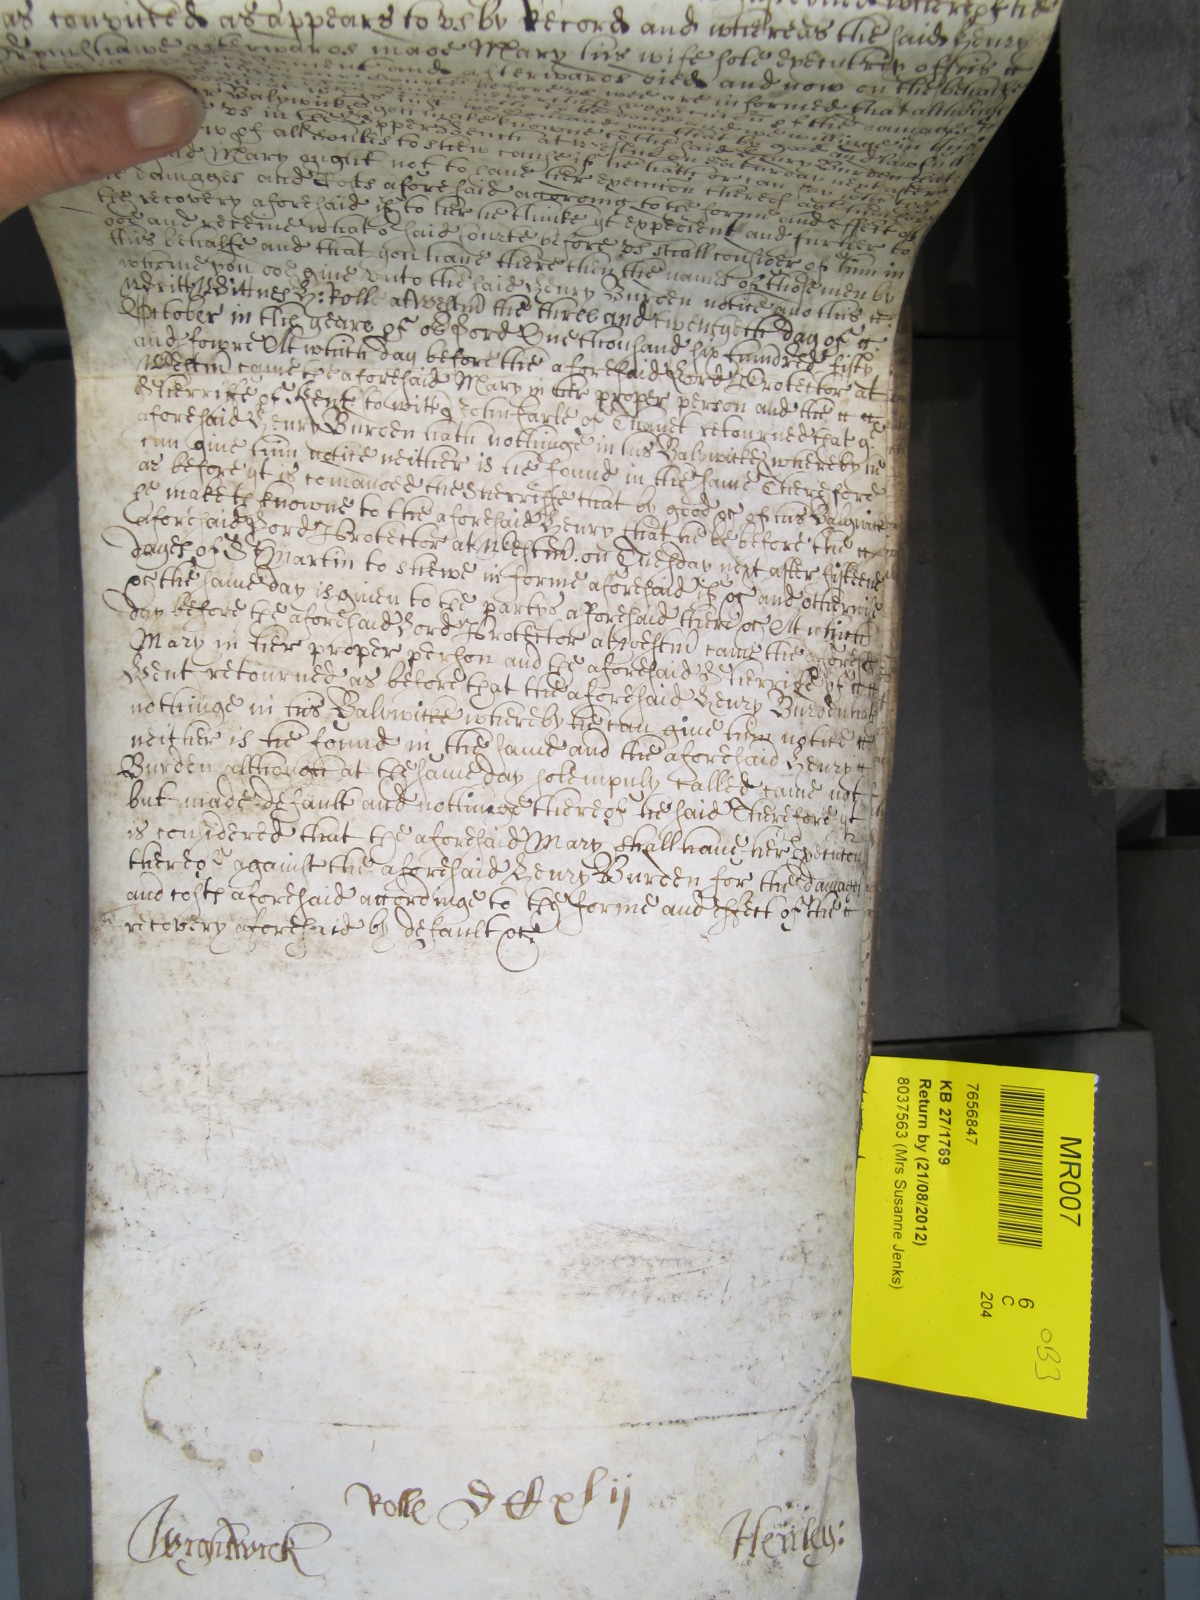 as convicted as appears to vs by Record and whereas the said Henry
afterwards made Mary his wife sole executrix of his
and afterwards died and now on the behalfe
wee are informed that although
of the damages
Mary ought not to haue her execucion thereof against him
damages and Costs aforesaid according to the forme and effect of
the recovery aforesaid if to her he thinke yt expedient and further to
doe and receiue what o said Courte before vs shall consider of him in
this behalfe and that you haue there then the names of those men by
whome you doe giue vnto the said Henry Burden notice and this
writt Wittnes H: Rolle at Westm the three and twentyeth day of
October in the yeare of oe Lord One thousand six hundred fifty
and fowre At which day before the aforesaid Lord Protector at
Westm came the aforesaid Mary in her proper person and the
Sherriffe of Kent to witt John Earle of Thanet retourned that ye
aforesaid Henry Burden hath nothinge in his Balywicke whereby he
can giue him notice neither is he found in the same Therefore
as before yt is comanded the Sherriffe that by good &c of his Balywicke
he make knowne to the aforesaid Henry that he be before the
aforesaid Lord Protector at Westm on Tuesday next after fifteene
dayes of St Martin to shewe in forme aforesaid if &c and otherwise
&c the same day is giuen to the partys aforesaid there &c At which
day before the aforesaid Lord Protector at Westm came the aforesd
Mary in her proper person and the aforesaid Sherriffe of
Kent retourned as before that the aforesaid Henry Burden hath
nothinge in his Balywicke whereby he can giue him notice
neither is he found in the same and the aforesaid Henry
Burden although at the same day solempnly called came not
but made default and nothinge thereof he said Therefore yt
is considered that the aforesaid Mary shall haue her Execucon
thereof against the aforesaid Henry Burden for the damages
and costs aforesaid accordinge to the forme and effect of the
recovery aforesaid by default &c
Rolle DCCxlij
Wightwick
Henley:
MR007
6
C
204
083
7656847
KB 27/1769
Return by (21/08/2012)
8037563 (Mrs Susanne Jenks)